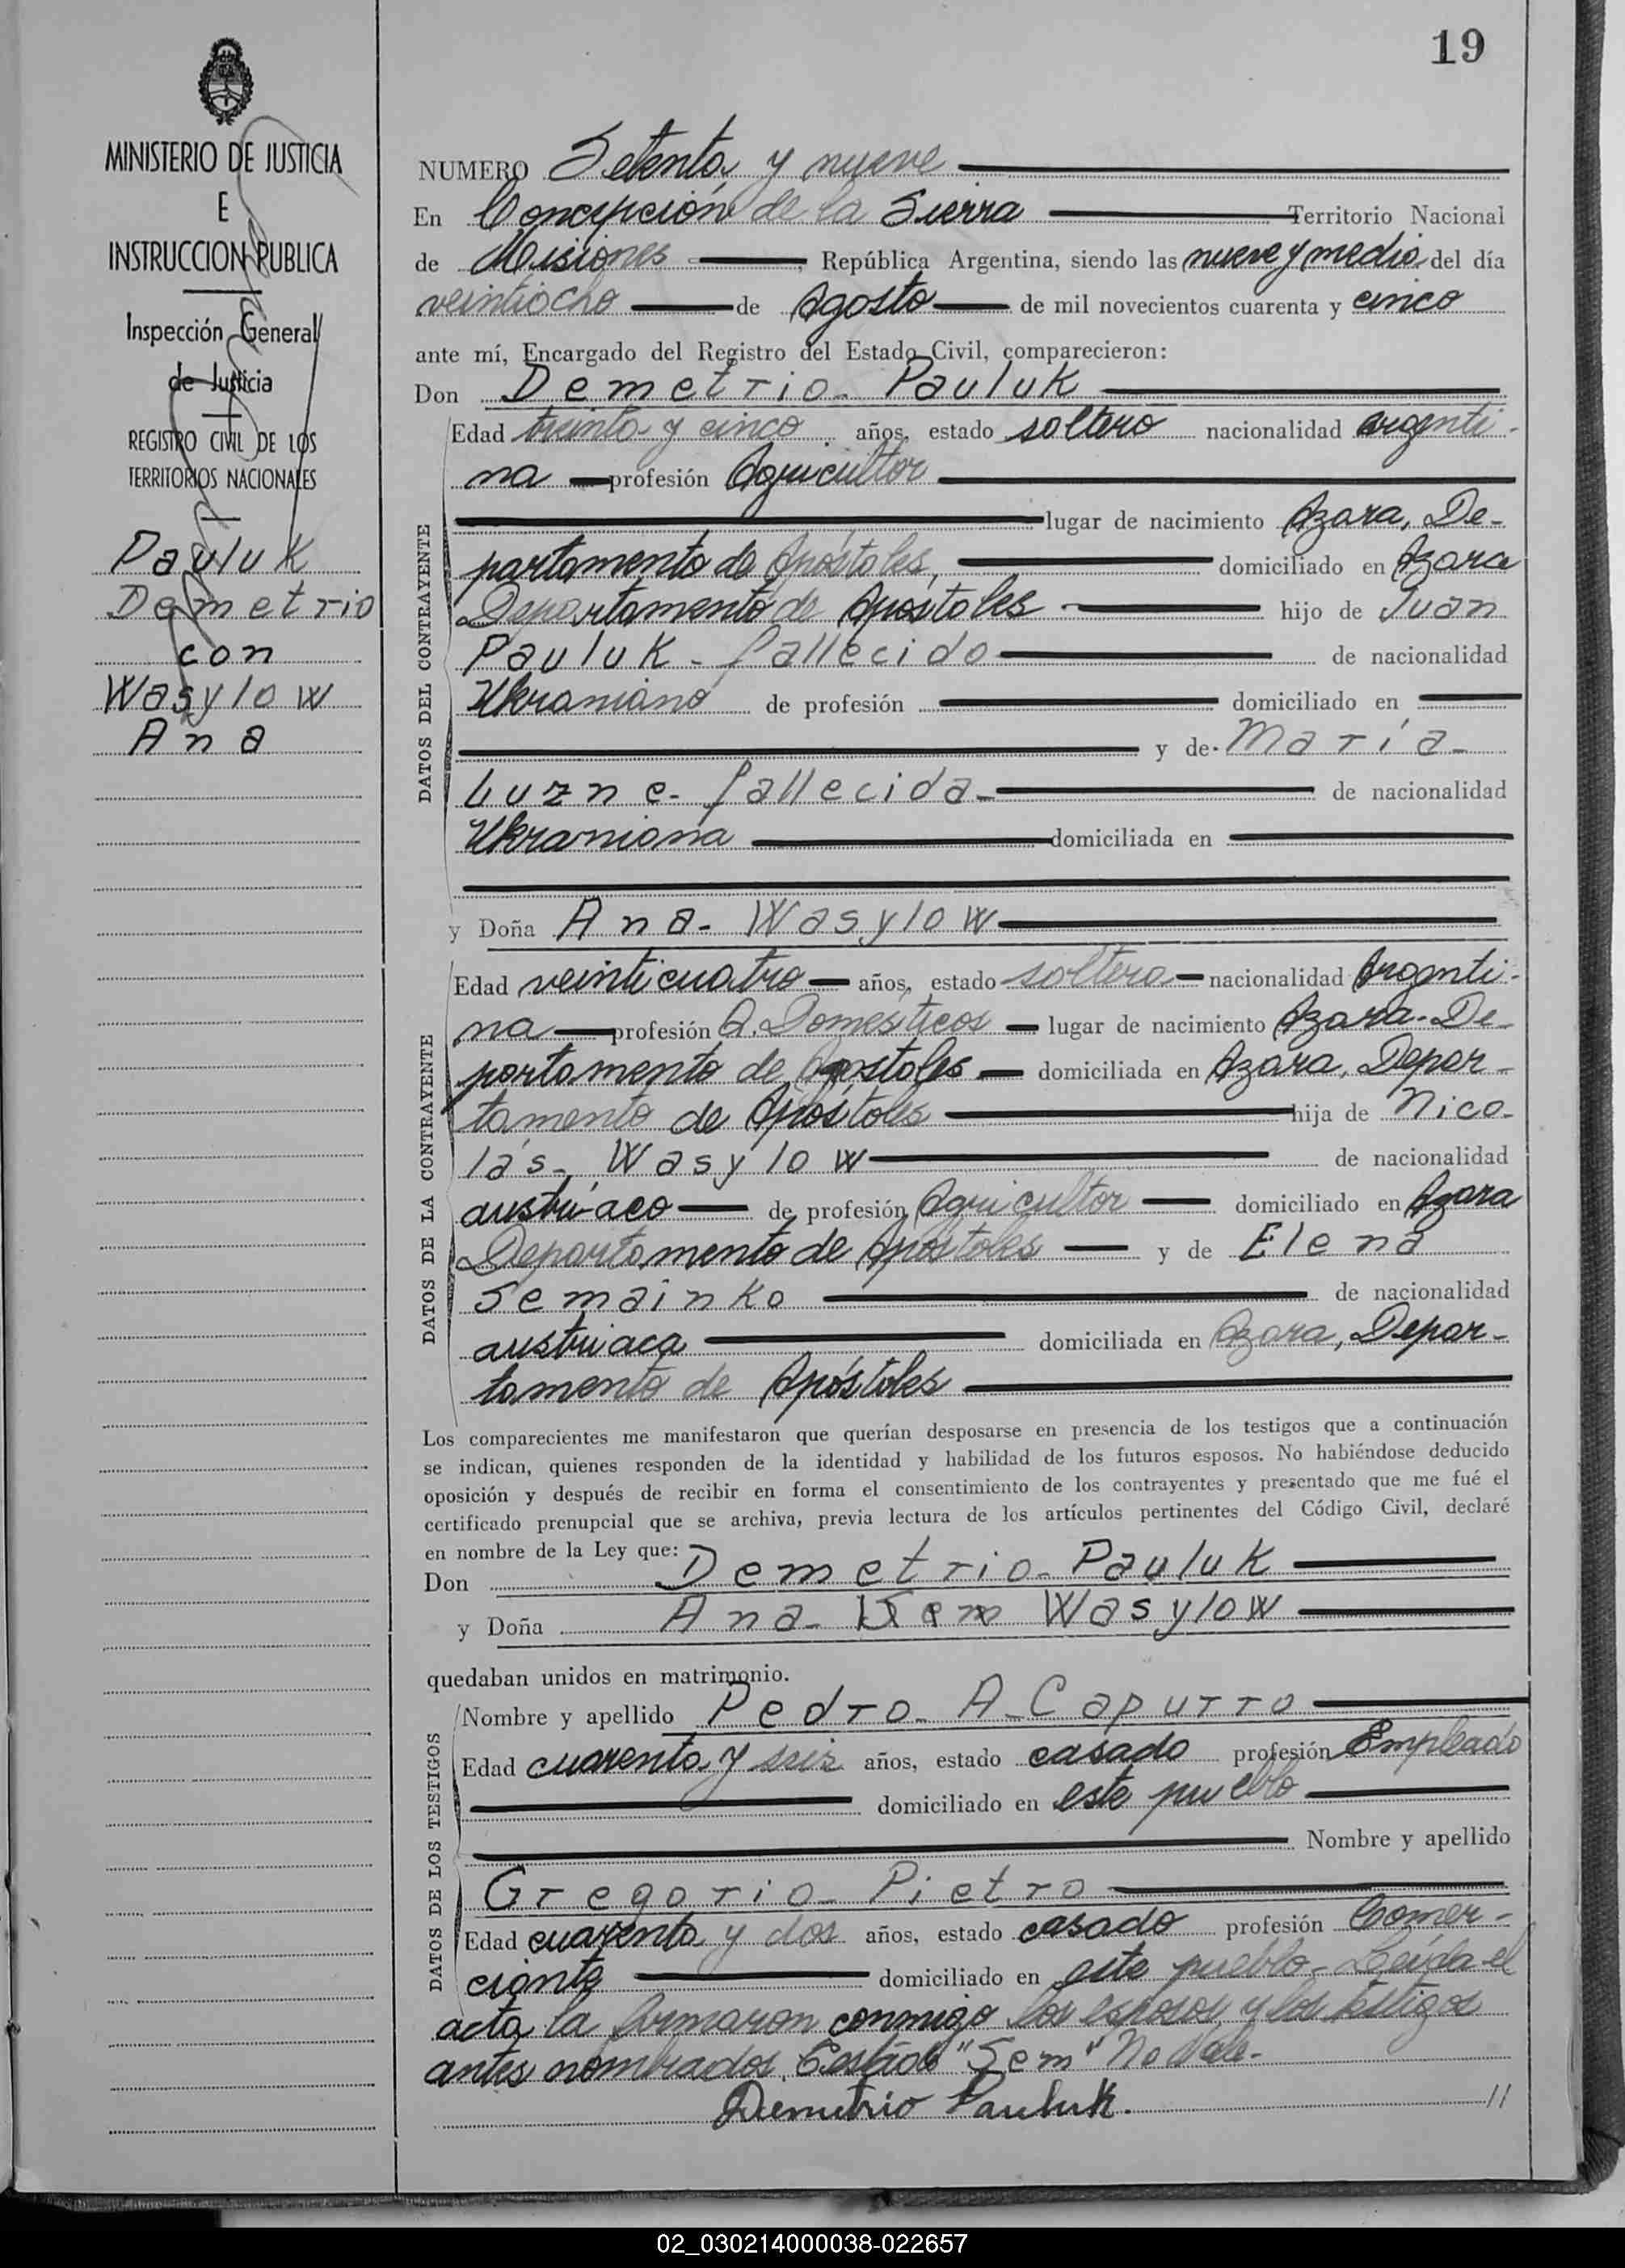 19
MINISTERIO DE JUSTICIA
E
INSTRUCCION PUBLICA
Inspección General
de Justicia
REGISTRO CIVIL DE LOS
TERRITORIOS NACIONALES
Pauluk
Demetrio
con
Wasylow
Ana
NUMERO Setenta y nueve
En Concepción de la Sierra Territorio Nacional
de Misiones, República Argentina, siendo las nueve y media del día
veintiocho de Agosto de mil novecientos cuarenta y cinco
ante mí, Encargado del Registro del Estado Civil, comparecieron:
Don Demetrio Pauluk
DATOS DEL CONTRAYENTE
Edad treinta y cinco años, estado soltero nacionalidad argenti-
na profesión Agricultor
lugar de nacimiento Azara, De-
partamento de Apóstoles, domiciliado en Azara
Departamento de Apóstoles hijo de Juan
Pauluk - fallecido de nacionalidad
Ukraniano de profesión domiciliado en
y de María
Luzne - fallecida de nacionalidad
Ukraniana domiciliada en
y Doña Ana Wasylow
DATOS DE LA CONTRAYENTE
Edad veinticuatro años, estado soltera nacionalidad Argenti-
na profesión Q. Domésticos lugar de nacimiento Azara - De-
partamento de Apóstoles domiciliada en Azara, Depar-
tamento de Apóstoles hija de Nico-
lás Wasylow de nacionalidad
austriaco de profesión Agricultor domiciliado en Azara
Departamento de Apóstoles y de Elena
Semainko de nacionalidad
austriaca domiciliada en Azara, Depar-
tamento de Apóstoles
Los comparecientes me manifestaron que querían desposarse en presencia de los testigos que a continuación
se indican, quienes responden de la identidad y habilidad de los futuros esposos. No habiéndose deducido
oposición y después de recibir en forma el consentimiento de los contrayentes y presentado que me fué el
certificado prenupcial que se archiva, previa lectura de los artículos pertinentes del Código Civil, declaré
en nombre de la Ley que:
Don Demetrio Pauluk
y Doña Ana Sem Wasylow
quedaban unidos en matrimonio.
DATOS DE LOS TESTIGOS
Nombre y apellido Pedro A. Capurro
Edad cuarenta y seis años, estado casado profesión Empleado
domiciliado en este pueblo
Nombre y apellido
Gregorio Pietro
Edad cuarenta y dos años, estado casado profesión Comer-
ciante domiciliado en este pueblo - Leída el
acta la firmaron conmigo los esposos y los testigos
antes nombrados. Testado "Sem" No Vale.
Demetrio Pauluk. //
02_030214000038-022657